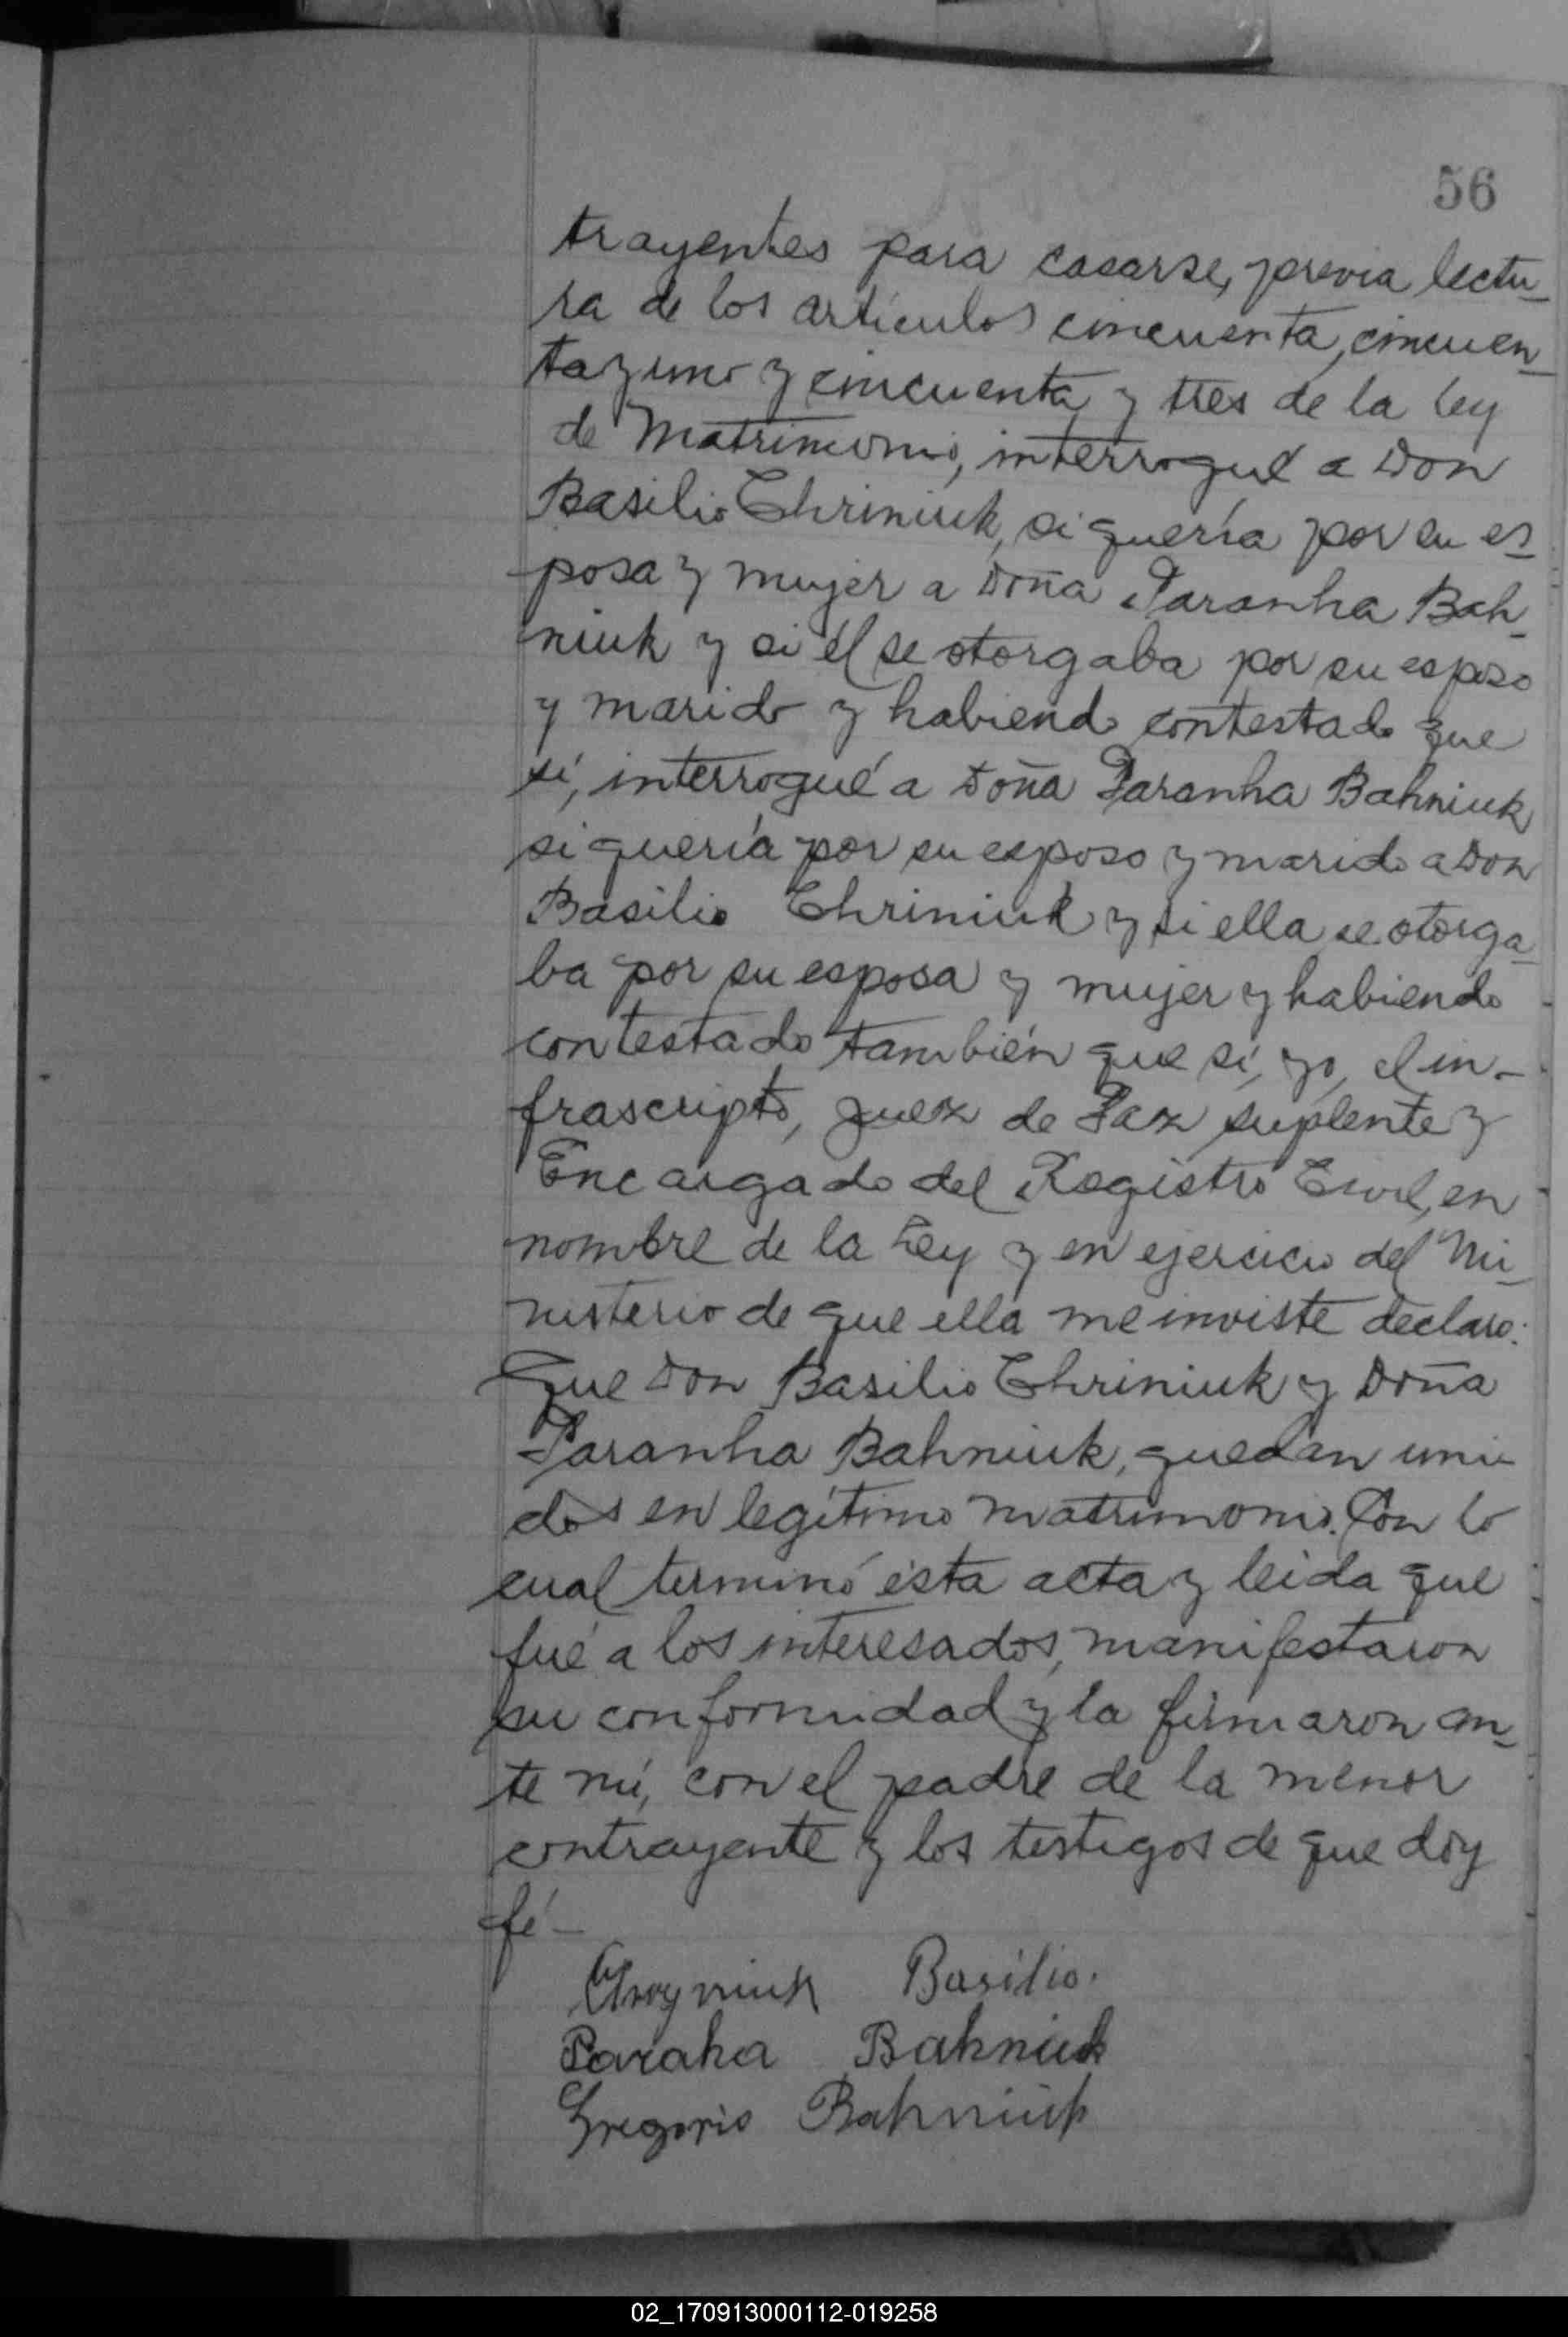 56
trayentes para casarse, previa lectu-
ra de los artículos cincuenta, cincuen-
ta y uno y cincuenta y tres de la Ley
de Matrimonio, interrogué a Don
Basilio Chriniuk, si quería por su es-
posa y mujer a Doña Paranha Bah-
niuk y si él se otorgaba por su esposo
y marido y habiendo contestado que
sí, interrogué a Doña Paranha Bahniuk
si quería por su esposo y marido a Don
Basilio Chriniuk y si ella se otorga-
ba por su esposa y mujer y habiendo
contestado también que sí, yo, el in-
frascripto, Juez de Paz suplente y
Encargado del Registro Civil, en
nombre de la Ley y en ejercicio del Mi-
nisterio de que ella me inviste declaro:
Que Don Basilio Chriniuk y Doña
Paranha Bahniuk, quedan uni-
dos en legítimo matrimonio. Con lo
cual terminó ésta acta y leida que
fué a los interesados, manifestaron
su conformidad y la firmaron an-
te mí, con el padre de la menor
contrayente y los testigos de que doy
fé-
Basilio.
Paraha Bahniuk
Gregorio Bahniuk
02_170913000112-019258